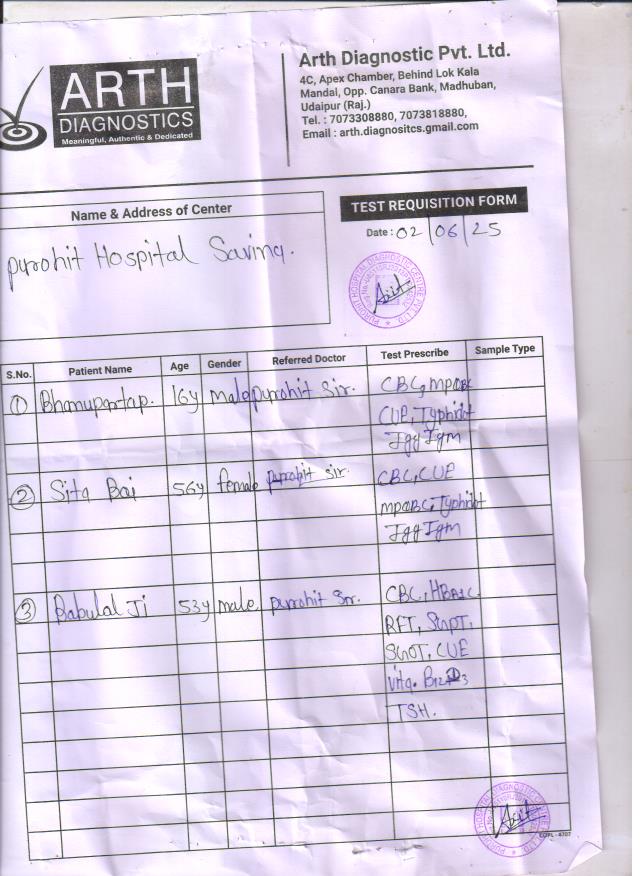 ARTH
DIAGNOSTICS
Meaningful, Authentic & Dedicated
Arth Diagnostic Pvt. Ltd.
4C, Apex Chamber, Behind Lok Kala
Mandal, Opp. Canara Bank, Madhuban,
Udaipur (Raj.)
Tel. : 7073308880, 7073818880,
Email : arth.diagnositcs.gmail.com
Name & Address of Center
TEST REQUISITION FORM
Purohit Hospital Savina.
Date : 02/06/25
S.No. Patient Name Age Gender Referred Doctor Test Prescribe Sample Type
① Bhanupartap. 16y male purohit Sir. CBC,
CUE, Typhidot
Igg Igm
② Sita Bai 56y female purohit sir. CBC, CUE
Typhidot
Igg Igm
③ Babulal Ji 53y male purohit Sir. CBC, HBA1C
RFT, SGPT,
SGOT, CUE
Vita. B12, D3
TSH.